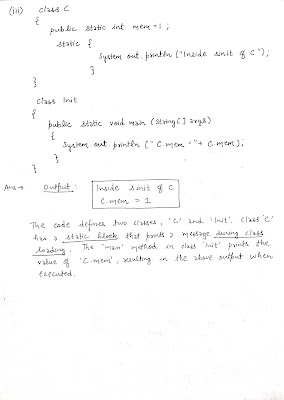 (iii) class C
{
public static int mem = 1 ;
static {
System.out.println ("Inside sinit of C");
}
}
class Init
{
public static void main (String [] args)
{
System.out.println (" C.mem = "+ C.mem);
}
}
Ans → Output :
Inside sinit of C
C.mem = 1
The code defines two classes, 'C' and 'Init'. Class 'C'
has a static block that prints a message during class
loading. The 'main' method in class 'Init' prints the
value of 'C.mem', resulting in the above output when
executed.